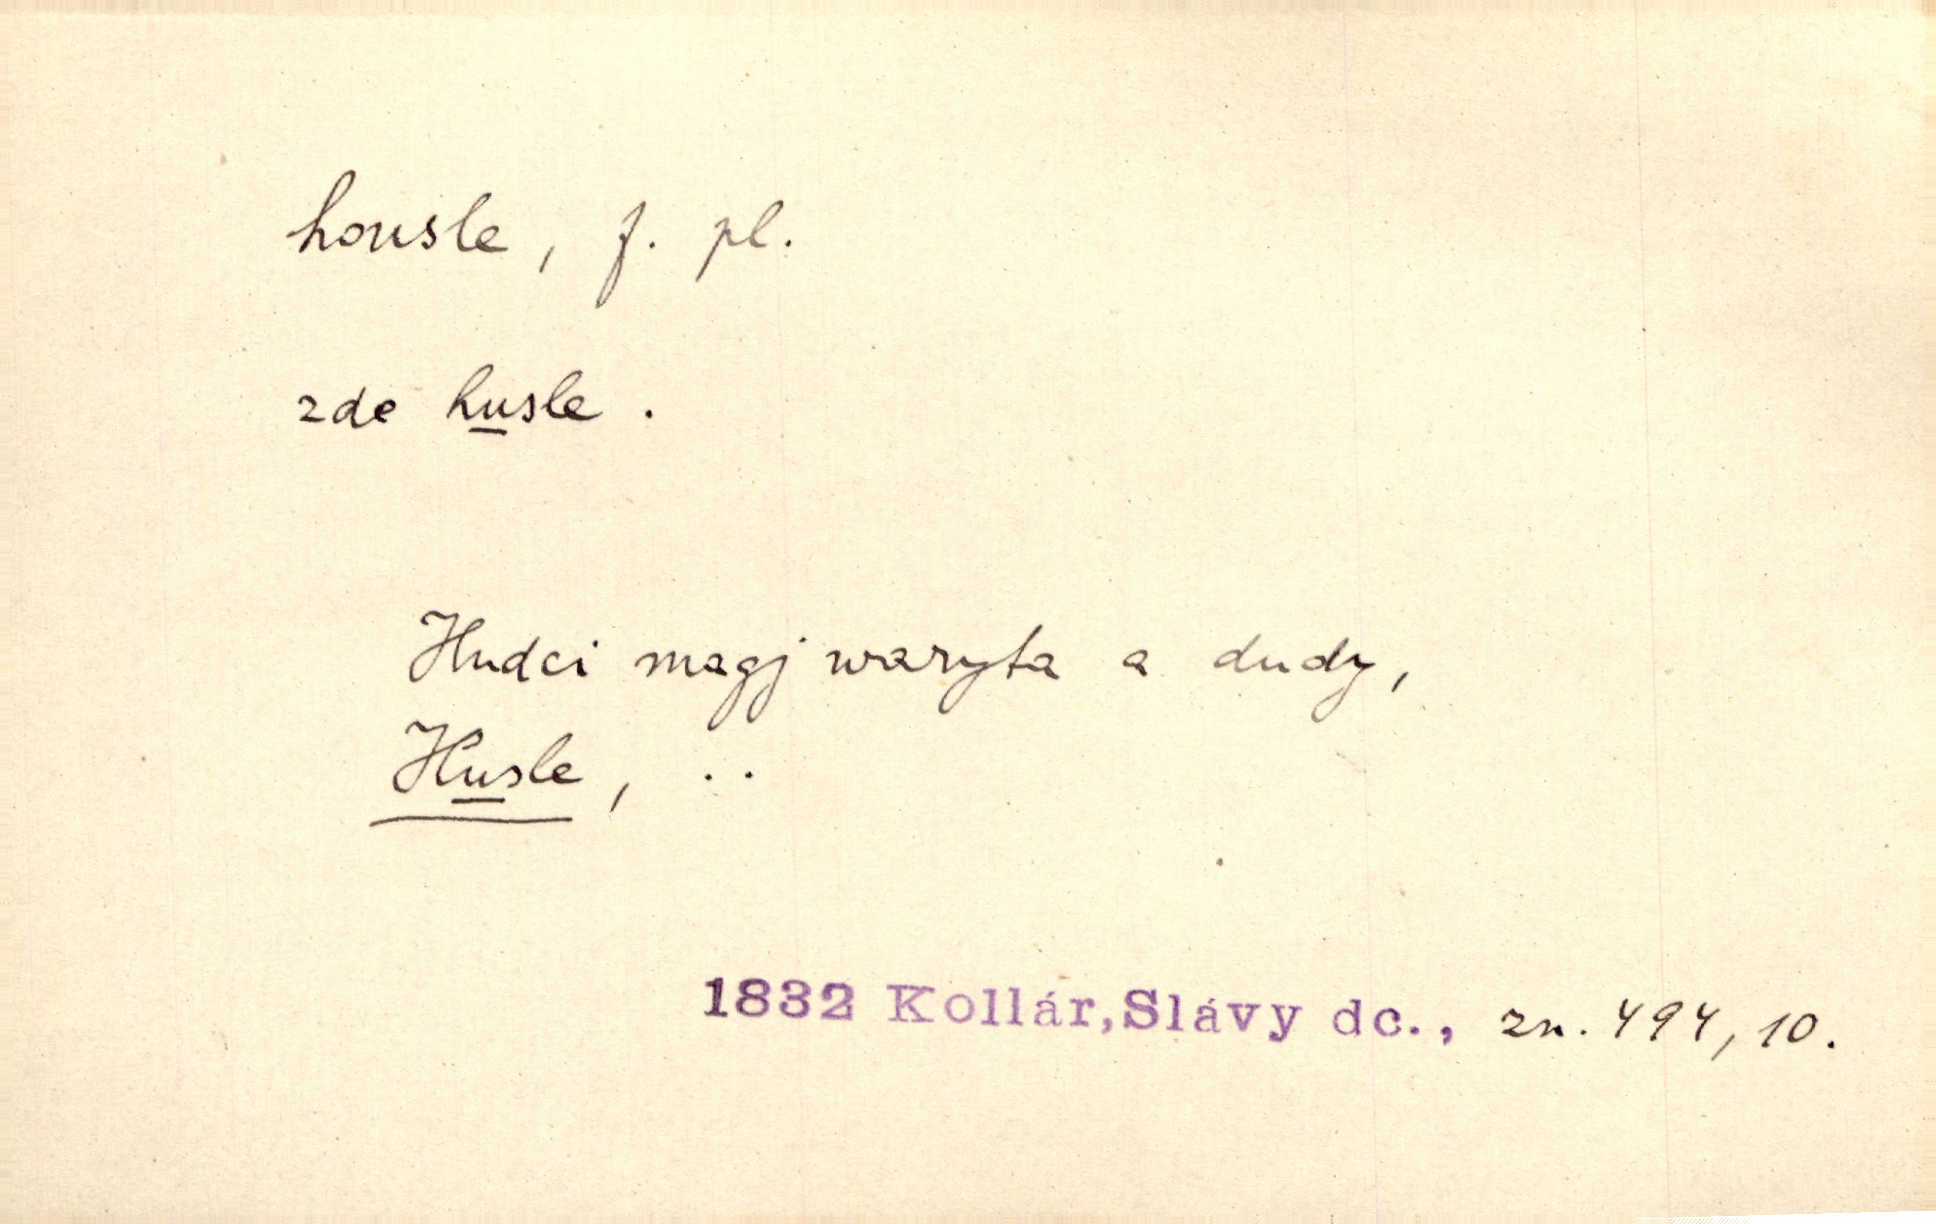 housle, f. pl.
zde husle.
Hudci magj waryta a dudy,
Husle, ..
1832 Kollár,Slávy dc., zn. 494, 10.